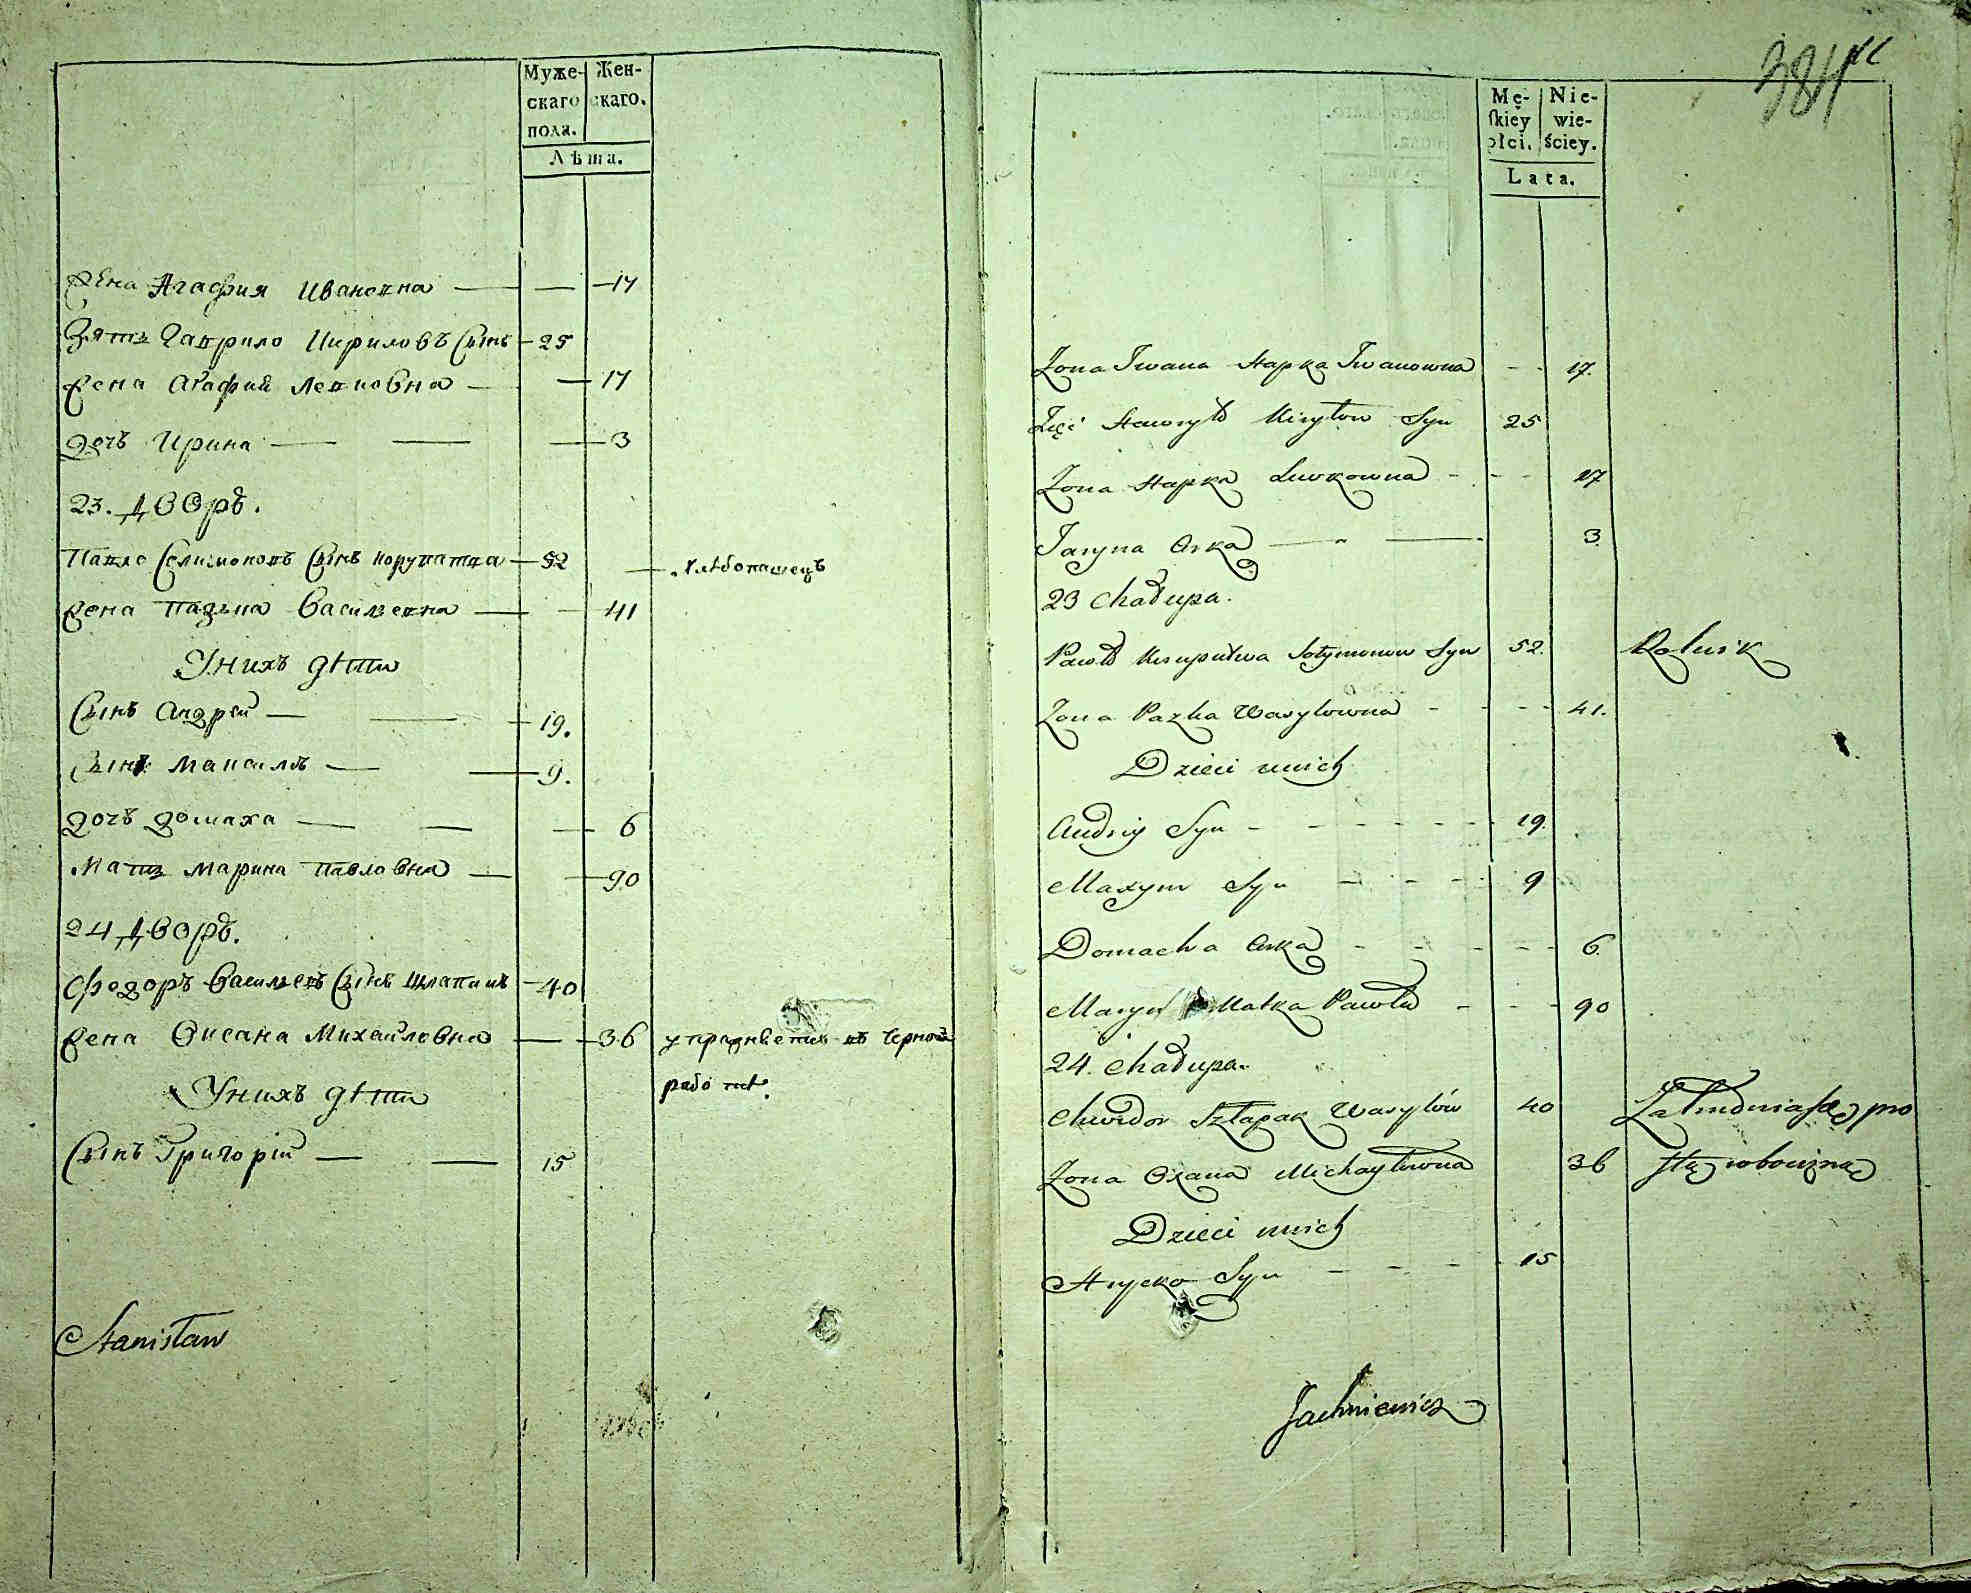 Муже-
скаго
пола.
Жен-
скаго.
Лѣта.
жена Агафия Ивановна — — — 17
Зять Гаврило Кириловъ Сынъ — 25
жена Агафия Левковна — — 17
дочь Ирина — — — 3
23. дворъ.
Павло Селимоновъ Сынъ — 52 — хлѣбопашецъ
жена Пазька Васильевна — — 41
У нихъ дѣти
Сынъ Андрей — — — 19.
Сынъ Максимъ — — 9.
дочь домаха — — — 6
Мать марина Павловна — — 90
24 дворъ.
Федоръ Васильевъ Сынъ Шлапакъ — 40
жена Оксана Михайловна — — 36 упражняется въ черной
У нихъ дѣти работѣ.
Сынъ Григорій — — 15
Stanisław
384
Mę-
skiey
płci.
Nie-
wie-
ściey.
Lata.
Żona Iwana Hapka Iwanowna - - 17.
Zięć Hawryło Kiryłow Syn 25
Żona Hapka Lewkowna - - - 17
Jaryna Curka — — 3
23 Chałupa.
Paweł Sołymonow Syn 52. Rolnik
Żona Pazka Wasylowna - - - - 41.
Dzieci unich
Andriy Syn - - - - - - 19.
Maxym Syn - - - - 9
Domacha Curka - - - - - 6.
Matka Pawła - - - 90
24. Chałupa.
Chwedor Szłapak Wasylów 40 Zatrudnia się pro
Żona Oxana Michayłowna 36 stą robocizną
Dzieci unich
Hrycko Syn - - - - 15
Jachniewicz